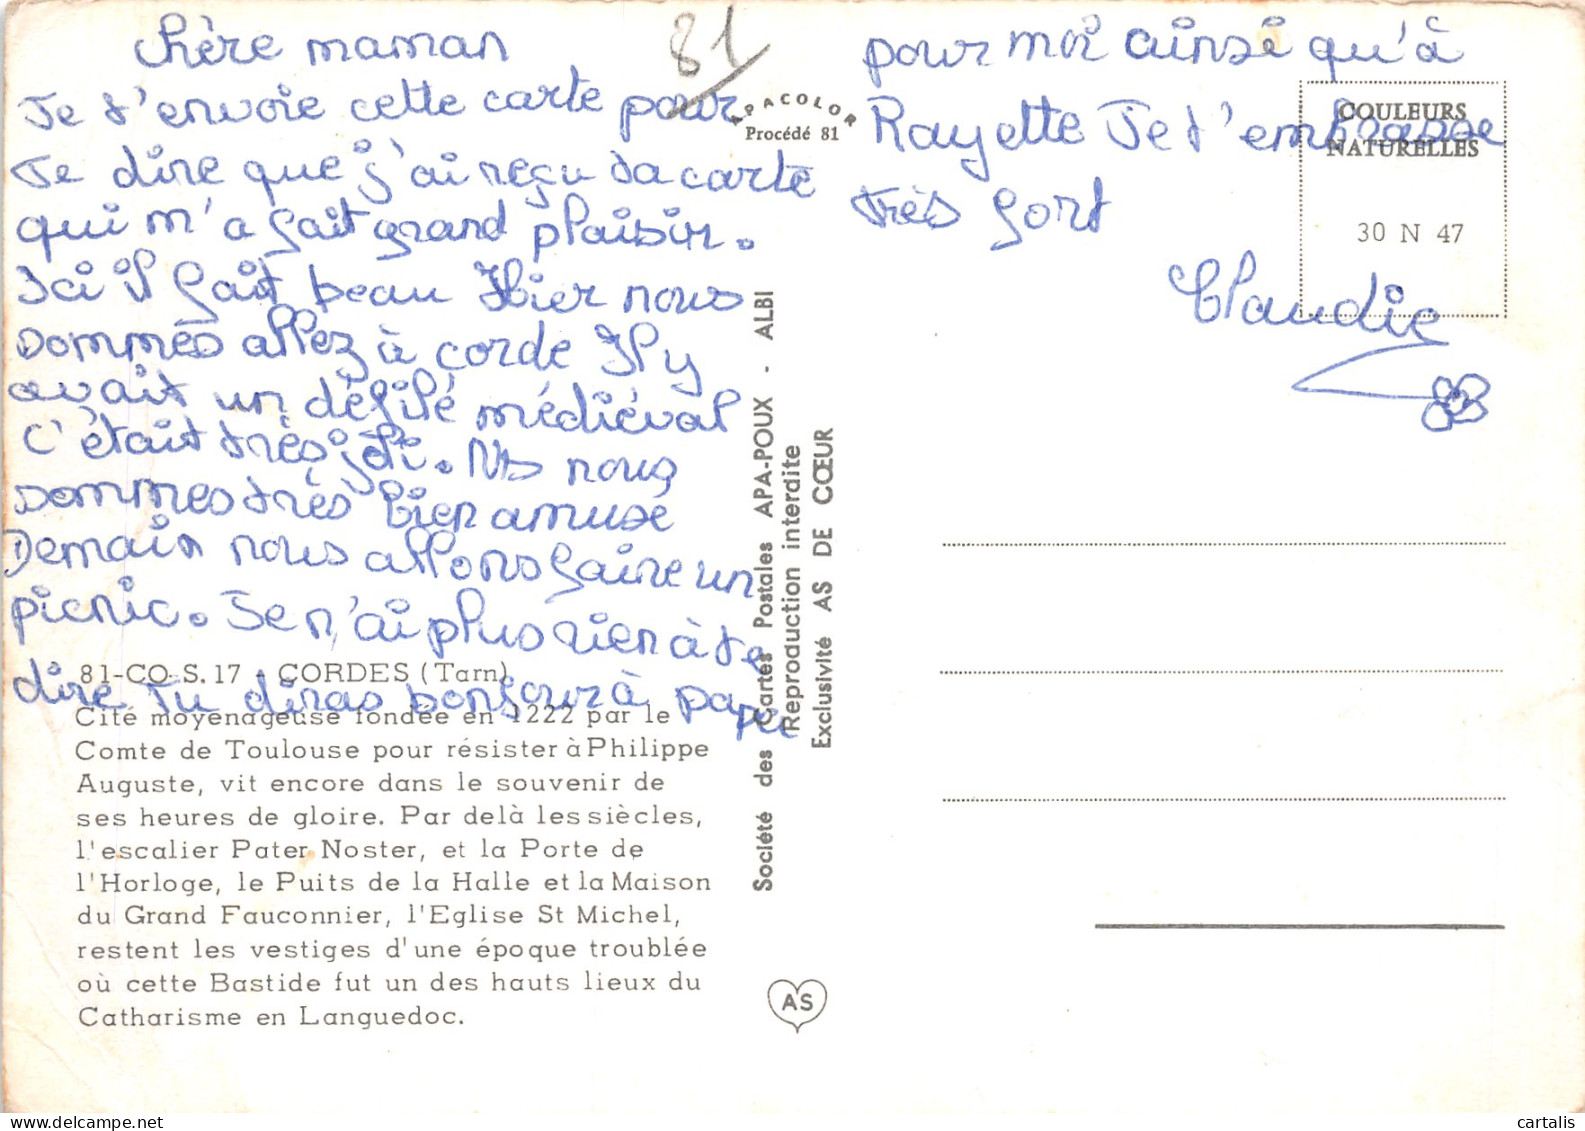 chère maman
Je t'envoie cette carte pour
Te dire que j'ai reçu ta carte
qui m'a fait grand plaisir.
Ici il fait beau Hier nous
sommes allez à corde Il y
avait un défilé médiéval
C'était très joli. Ns nous
sommes très bien amusé
Demain nous allons faire un
picnic. Je n'ai plus rien à te
dire Tu diras bonjour à papa
pour moi ainsi qu'à
Rayette Je t'embrasse
très fort
Claudie
81
APACOLOR
Procédé 81
COULEURS
NATURELLES
30 N 47
81-CO-S. 17 - CORDES (Tarn)
Cité moyenageuse fondée en 1222 par le
Comte de Toulouse pour résister à Philippe
Auguste, vit encore dans le souvenir de
ses heures de gloire. Par delà les siècles,
l'escalier Pater Noster, et la Porte de
l'Horloge, le Puits de la Halle et la Maison
du Grand Fauconnier, l'Eglise St Michel,
restent les vestiges d'une époque troublée
où cette Bastide fut un des hauts lieux du
Catharisme en Languedoc.
Société des Cartes Postales APA-POUX - ALBI
Reproduction interdite
Exclusivité AS DE CŒUR
AS
cartalis